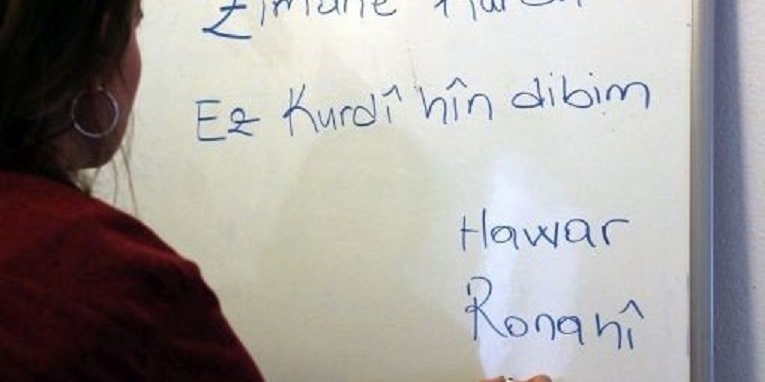 Ez Kurdî hîn dibim
Hawar
Ronahî